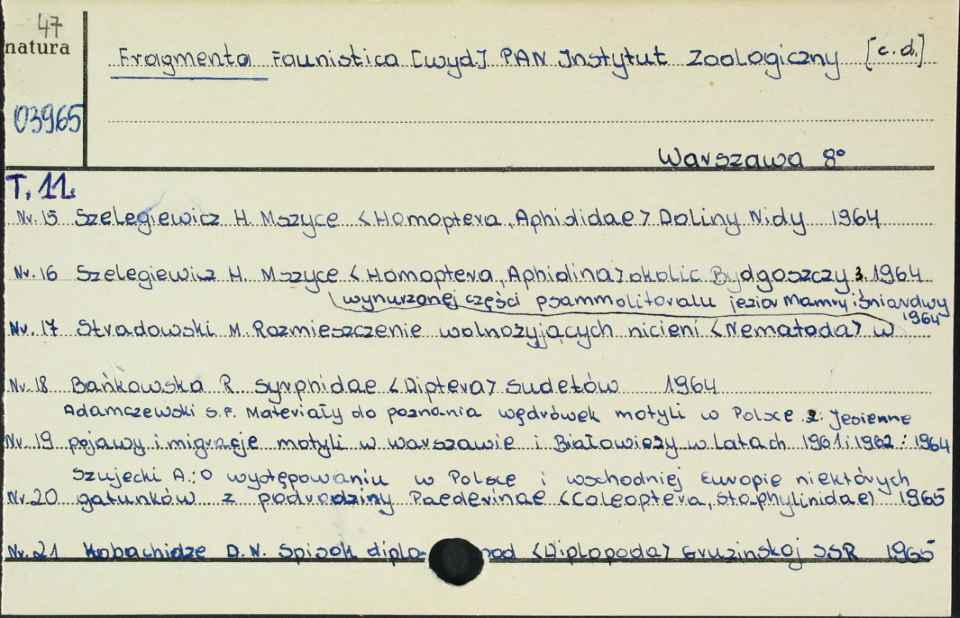 47
natura
Fragmenta Faunistica [wyd.] PAN Instytut Zoologiczny [c.d.]
03965
Warszawa 8°
T. 11.
Nr. 15 Szelegiewicz H. Mszyce <Homoptera, Aphididae> Doliny Nidy 1964
Nr. 16 Szelegiewicz H. Mszyce <Homoptera, Aphidina> okolic Bydgoszczy 3. 1964
wynurzonej części psammolitoralu jezior Mamry i Śniardwy
1964
Nr. 17 Stradowski M. Rozmieszczenie wolnożyjących nicieni <Nematoda> w
Nr. 18 Bańkowska R. Syrphidae <Diptera> Sudetów 1964
Adamczewski S.F. Materiały do poznania wędrówek motyli w Polsce. 2: Jesienne
Nr. 19 pojawy i migracje motyli w Warszawie i Białowieży w latach 1961 i 1962: 1964
Szujecki A.: O występowaniu w Polsce i wschodniej Europie niektórych
Nr. 20 gatunków z podrodziny Paederinae <Coleoptera, Staphylinidae> 1965
Nr. 21 Kobachidze D.N. Spisok diplo pod <Diplopoda> Gruzinskoj SSR 1965